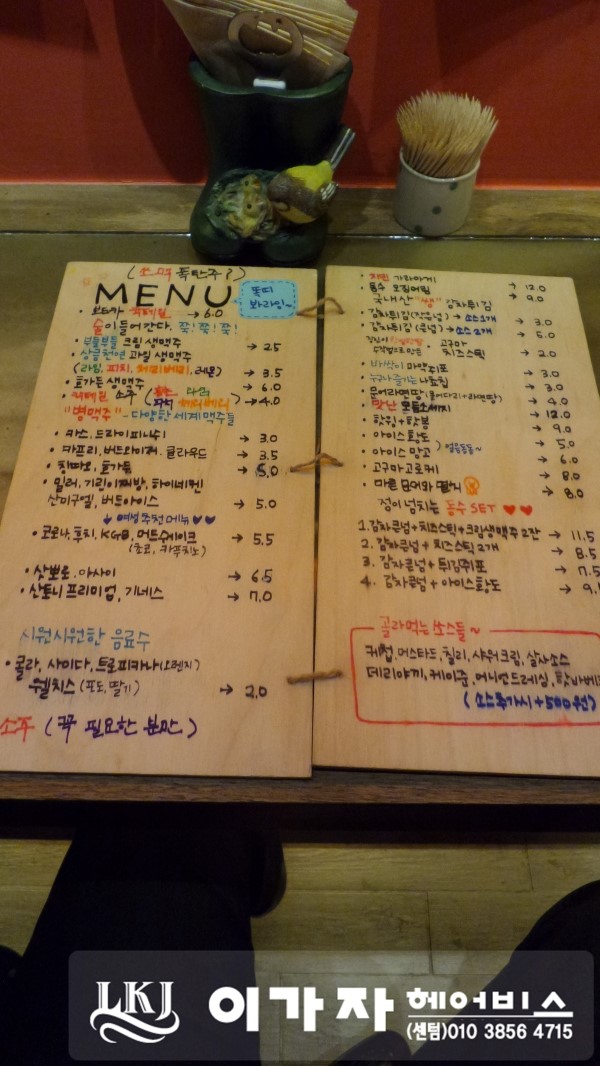 (소맥 폭탄주?)
MENU
똑띠
봐라잉~
보드카 칵테일 → 6.0
술이 들어간다 쭉! 쭉! 쭉!
· 부들부들 크림 생맥주 → 2.5
· 상큼천연 과일 생맥주
(라임, 피치, 체리베리, 레몬) → 3.5
· 호가든 생맥주 → 6.0
· 칵테일 소주 → 4.0
"병맥주" - 다양한 세계맥주들
· 카스. 드라이피니쉬 → 3.0
· 카프리, 버드와이저. 클라우드 → 3.5
· 칭따오, 호가든 → 5.0
· 밀러, 기린이찌방, 하이네켄
산미구엘, 버드아이스 → 5.0
↓ 여성 추천 메뉴 ♥♥
· 코로나, 후치, KGB, 머드쉐이크 → 5.5
(초코, 카푸치노)
· 삿뽀로. 아사이 → 6.5
· 산토니 프리미엄, 기네스 → 7.0
시원시원한 음료수
· 콜라, 사이다, 트로피카나(오렌지)
웰치스 (포도, 딸기) → 2.0
소주 (꼭 필요한 분만)
· 치킨 가라아게 → 12.0
· 통수 오징어링 → 9.0
국내산 "쌩" 감자튀김
· 감자튀김 (작은넘) → 소스1개 → 3.0
· 감자튀김 (큰넘) → 소스2개 → 5.0
고구마
치즈스틱 → 2.0
· 바싹이 마약쥐포 → 3.0
· 누구나 즐기는 나쵸칩 → 3.0
· 문어라면땅 (문어다리+라면땅) → 4.0
· 맛난 모듬소세지 → 12.0
· 핫윙+핫봉 → 9.0
· 아이스 황도 → 5.0
· 아이스 망고 → 6.0
얼음동동~
· 고구마고로케 → 8.0
· 마른 문어와 멸치 → 8.0
정이 넘치는 동수 SET ♥♥
1. 감자큰넘+치즈스틱+크림생맥주 2잔 → 11.5
2. 감자큰넘+ 치즈스틱 2개 → 8.5
3. 감자큰넘 + 튀김쥐포 → 7.5
4. 감자큰넘 + 아이스황도 → 9.5
골라먹는 소스들~
케첩, 머스타드, 칠리, 샤워크림, 살사소스
데리야끼, 케이준, 어니언드레싱, 핫바베
(소스추가시 + 500원)
LKJ 이가자 헤어비스
(센텀)010 3856 4715